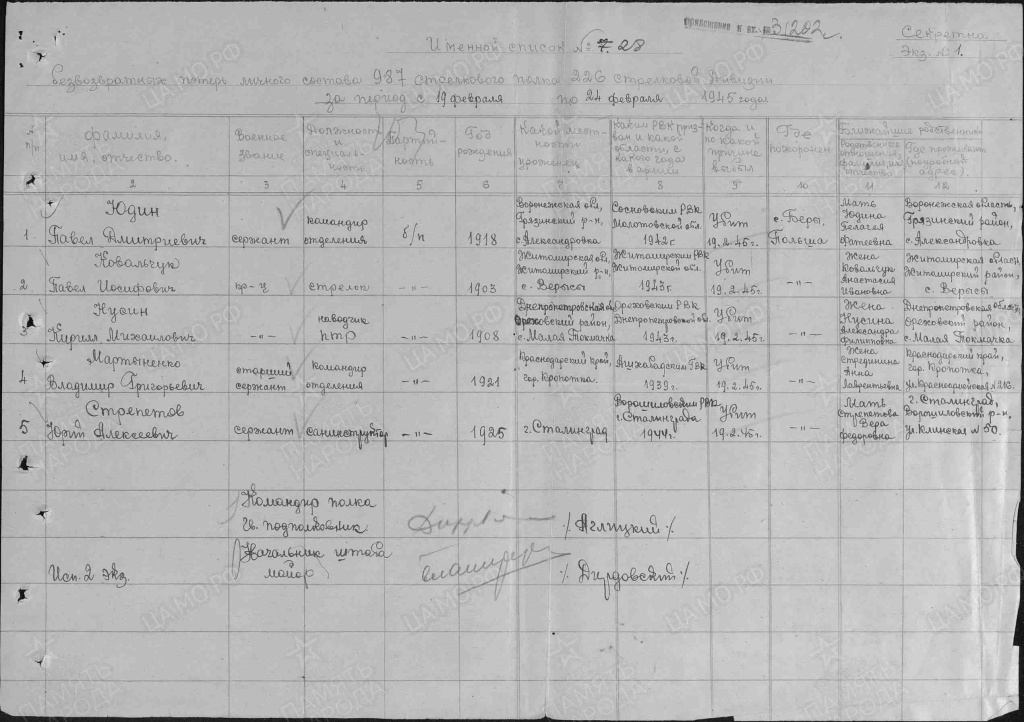 приложение к вх. № 3/202
Секретно
Экз. № 1.
Именной список № 28
безвозвратных потерь личного состава 987 стрелкового полка 226 стрелковой дивизии
за период с 19 февраля по 24 февраля 1945 года
№ п/п
фамилия, имя, отчество.
Военное звание
Должность и специальность
Партийность
Год рождения
Какой местности уроженец
Каким РВК призван и какой области, с какого года в армии
Когда и по какой причине выбыл
Где похоронен
Ближайшие родственники
Родственные отношения, фамилия, имя, отчество
Где проживают (подробный адрес).
2 3 4 5 6 7 8 9 10 11 12
1
Юдин
Павел Дмитриевич
сержант
командир
отделения
б/п
1918
Воронежская обл,
Грязинский р-н,
с. Александровка
Сосновским РВК
Молотовской обл.
1942 г
Убит
19.2.45 г.
с. Бсеры,
Польша
Мать
Юдина
Пелагея
Фатеевна
Воронежская область,
Грязинский район,
с. Александровка
2
Ковальчук
Павел Иосифович
кр-ц
стрелок
-"-
1903
Житомирская обл,
Житомирский р-н,
с. Вересы
Житомирским РВК
Житомирской обл.
1943 г.
Убит
19.2.45 г.
-"-
Жена
Ковальчук
Анастасия
Ивановна
Житомирская област,
Житомирский район,
с. Вересы
3
Нусин
Кирилл Михайлович
-"-
наводчик
ПТР
-"-
1908
Днепропетровская обл
Ореховский район,
с. Малая Токмачка
Ореховским РВК
Днепропетровской обл.
1943 г.
Убит
19.2.45 г.
-"-
Жена
Нусина
Александра
Филипповна
Днепропетровская область
Ореховский район,
с. Малая Токмачка
4
Мартыненко
Владимир Григорьевич
старший
сержант
командир
отделения
-"-
1921
Краснодарский край,
гор. Кропотка.
1939 г.
Убит
19.2.45 г.
-"-
Жена
Анна
Лаврентьевна
Краснодарский край,
гор. Кропотка,
ул. Красноармейская № 216.
5
Стрепетов
Юрий Алексеевич
сержант
санинструктор
-"-
1925
г. Сталинград
Ворошиловским РВК
г. Сталинграда
1944 г.
Убит
19.2.45 г.
-"-
Мать
Стрепетова
Вера
Федоровна
г. Сталинград,
Ворошиловский р-н,
ул. Клинская № 50.
Командир полка
Гв. подполковник
/Яглицкий/
Начальник штаба
майор
/Дирдовский/
Исп. 2 экз.
ЦАМО.РФ
ПАМЯТЬ НАРОДА